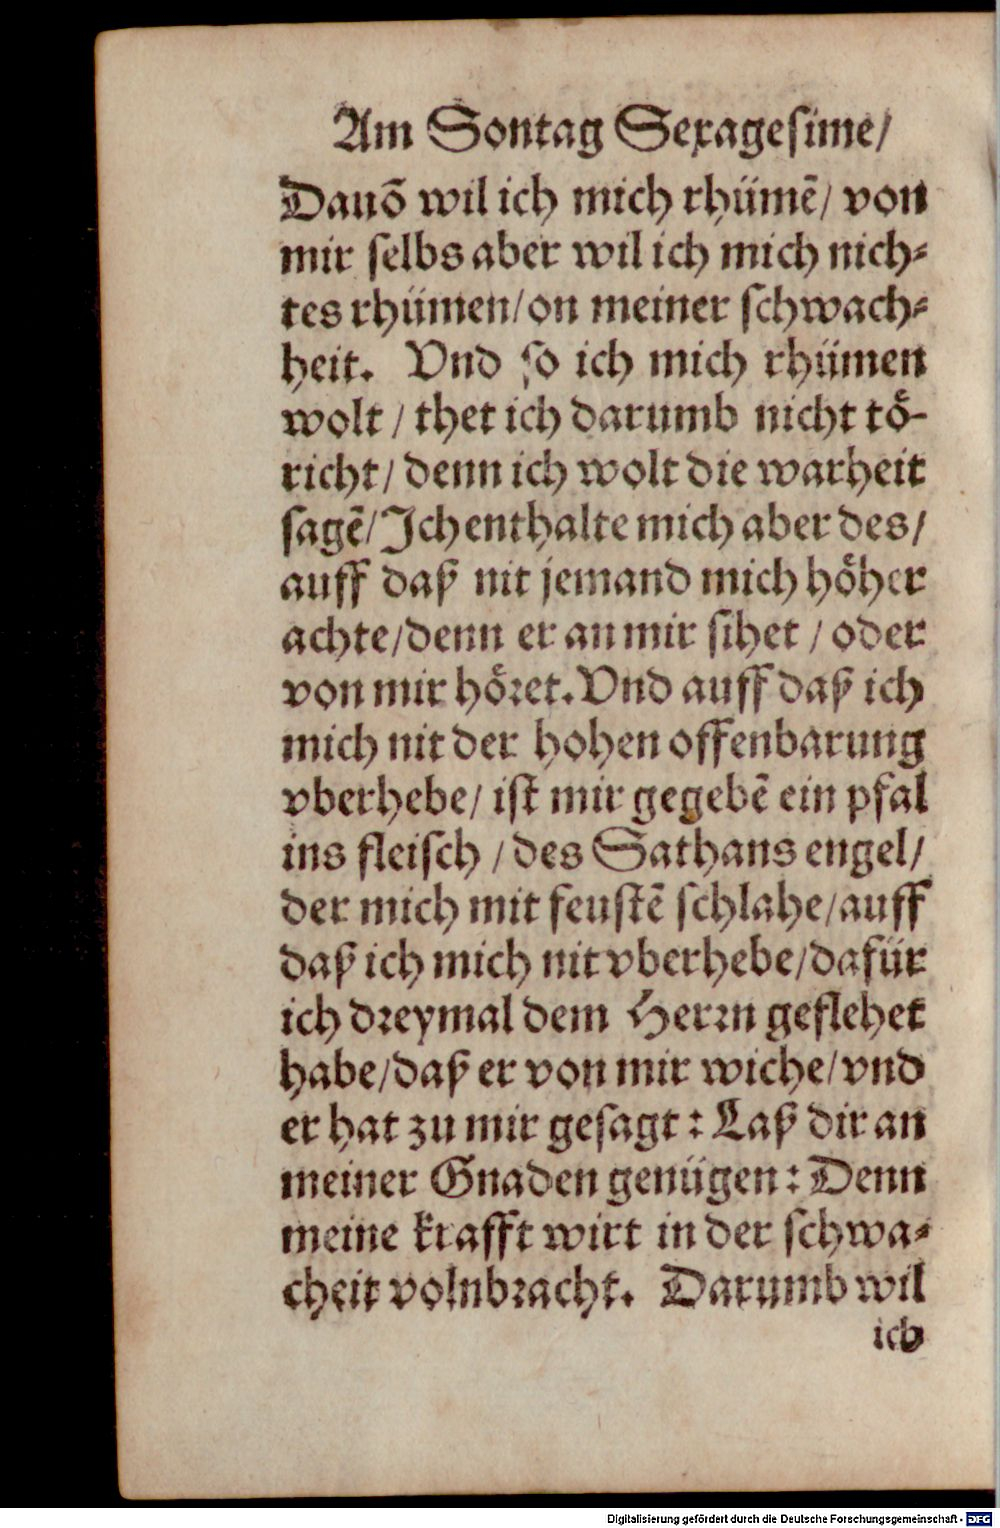 Am Sontag Sexagesime/
Dauõ wil ich mich rhümẽ/ von
mir selbs aber wil ich mich nich⸗
tes rhümen/on meiner schwach⸗
heit. Vnd so ich mich rhümen
wolt / thet ich darumb nicht tö-
richt/ denn ich wolt die warheit
sagẽ/Ich enthalte mich aber des/
auff daß nit jemand mich höher
achte/denn er an mir sihet / oder
von mir höret. Vnd auff daß ich
mich nit der hohen offenbarung
vberhebe/ ist mir gegebẽ ein pfal
ins fleisch / des Sathans engel/
der mich mit feustẽ schlahe/auff
daß ich mich nit vberhebe/dafür
ich dreymal dem Herrn geflehet
habe/daß er von mir wiche/vnd
er hat zu mir gesagt: Laß dir an
meiner Gnaden genügen: Denn
meine krafft wirt in der schwa⸗
cheit volnbracht. Darumb wil
ich
Digitalisierung gefördert durch die Deutsche Forschungsgemeinschaft - DFG